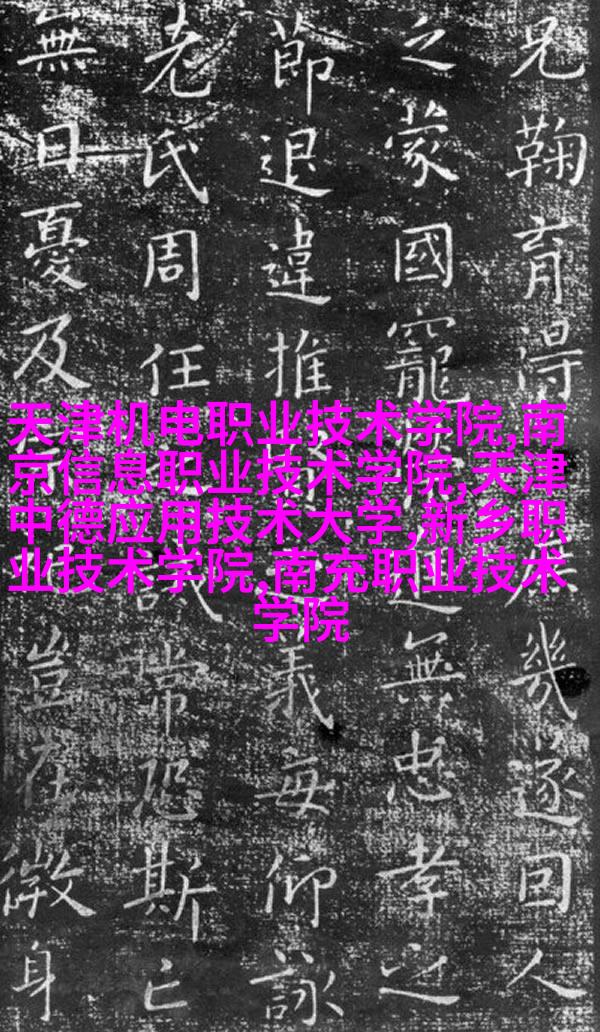 兄鞠育得幾遂回人
之蒙國寵無忠孝之
節退違推義每仰詠
老氏周任誡常恐斯亡
無日憂及豈在微身
天津机电职业技术学院,南
京信息职业技术学院,天津
中德应用技术大学,新乡职
业技术学院,南充职业技术
学院